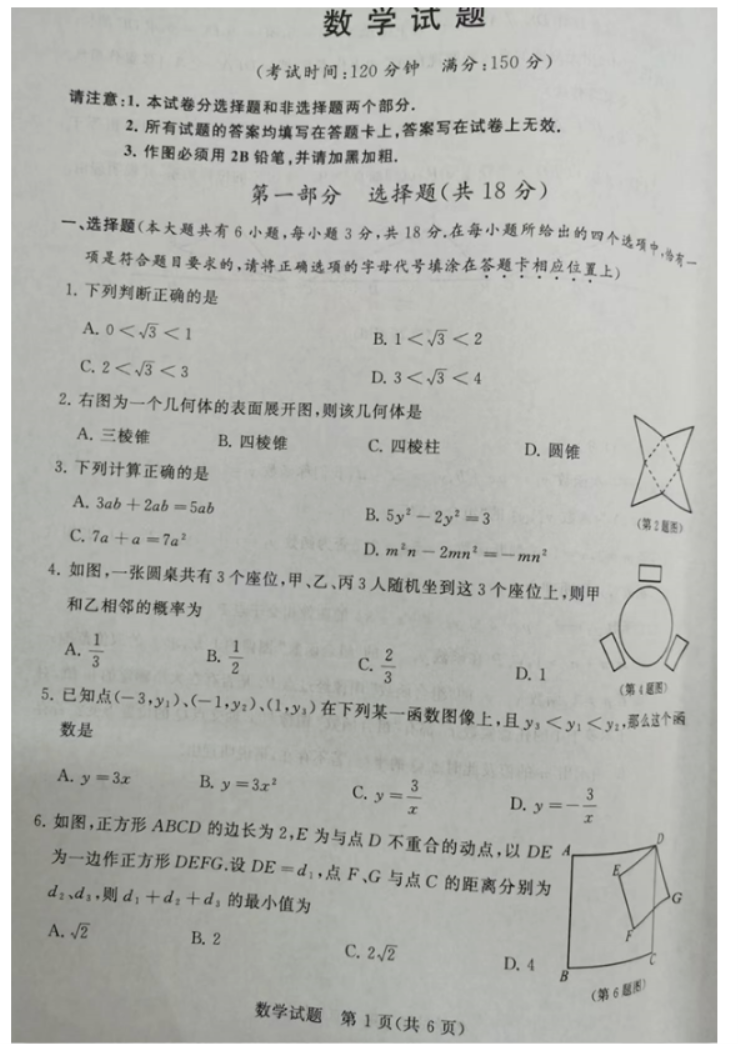 数学试题
(考试时间:120分钟 满分:150分)
请注意:1. 本试卷分选择题和非选择题两个部分.
2. 所有试题的答案均填写在答题卡上,答案写在试卷上无效.
3. 作图必须用2B铅笔,并请加黑加粗.
第一部分 选择题(共18分)
一、选择题(本大题共有6小题,每小题3分,共18分.在每小题所给出的四个选项中,恰有一
项是符合题目要求的,请将正确选项的字母代号填涂在答题卡相应位置上)
1. 下列判断正确的是
A. 0<√3<1 B. 1<√3<2
C. 2<√3<3 D. 3<√3<4
2. 右图为一个几何体的表面展开图,则该几何体是
A. 三棱锥 B. 四棱锥 C. 四棱柱 D. 圆锥
(第2题图)
3. 下列计算正确的是
A. 3ab+2ab=5ab B. 5y²-2y²=3
C. 7a+a=7a² D. m²n-2mn²=-mn²
4. 如图,一张圆桌共有3个座位,甲、乙、丙3人随机坐到这3个座位上,则甲
和乙相邻的概率为
A. 1/3 B. 1/2 C. 2/3 D. 1
(第4题图)
5. 已知点(-3,y₁)、(-1,y₂)、(1,y₃)在下列某一函数图像上,且y₃<y₁<y₂,那么这个函
数是
A. y=3x B. y=3x² C. y=3/x D. y=-3/x
6. 如图,正方形ABCD的边长为2,E为与点D不重合的动点,以DE
为一边作正方形DEFG.设DE=d₁,点F、G与点C的距离分别为
d₂、d₃,则d₁+d₂+d₃的最小值为
A. √2 B. 2 C. 2√2 D. 4
A D E G F B C
(第6题图)
数学试题 第1页(共6页)